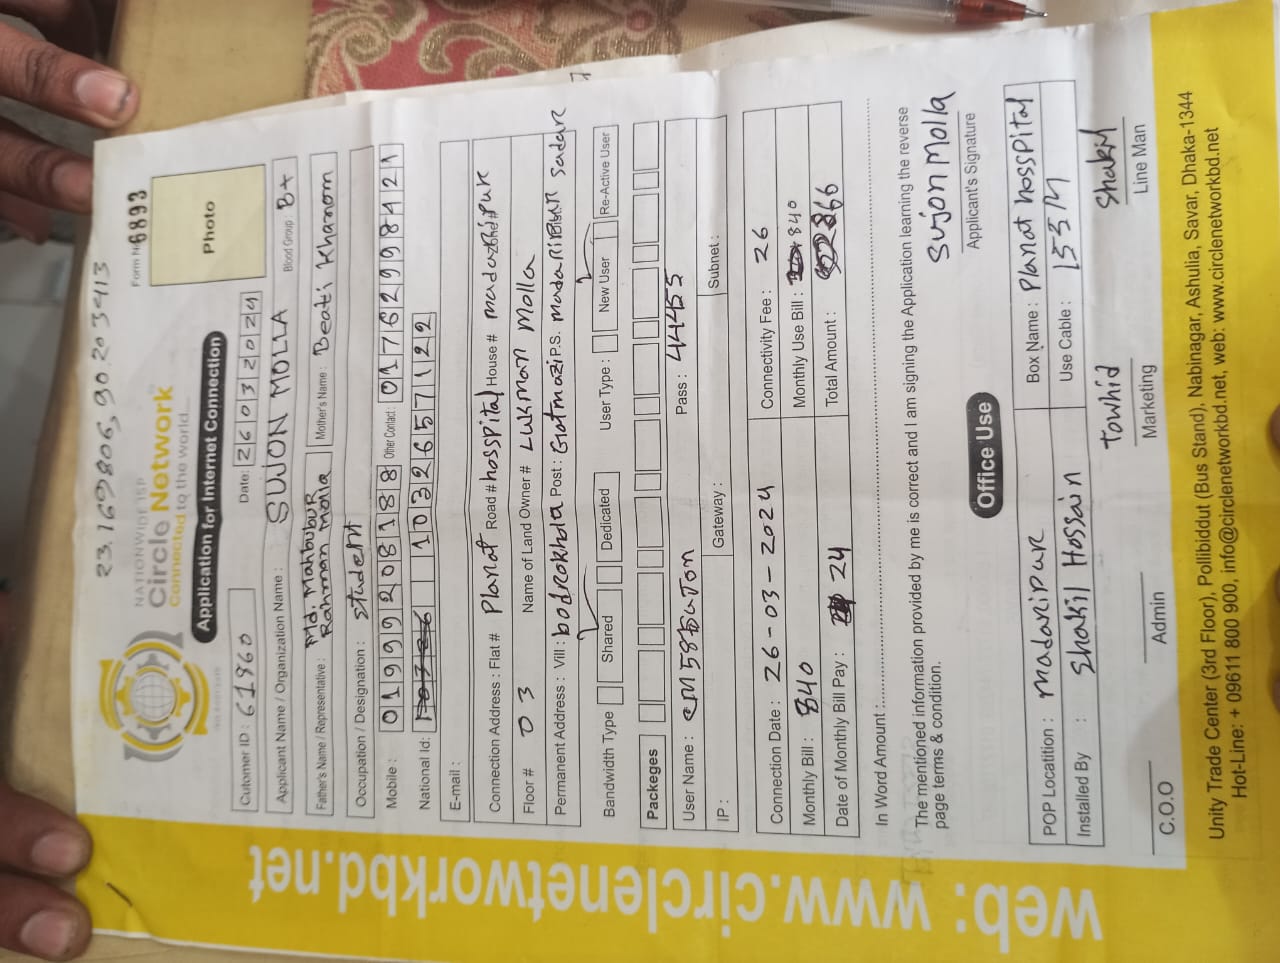 23.169806, 90.203413
NATIONWIDE ISP
Circle Network
Connected to the world....
Form No 6893
Application for Internet Connection
Photo
Cutomer ID : 61960 Date: 26032024
Applicant Name / Organization Name : SUJON MOLLA Blood Group : B+
Father's Name / Representative : Md. Mahbubur Rahman Molla Mother's Name : Beati Khanom
Occupation / Designation : student
Mobile : 01999208188 Other Contact: 01762998421
National Id: 1032657122
E-mail :
Connection Address : Flat # Planat Road # hosspital House # madaripur
Floor # 03 Name of Land Owner # Lukman Molla
Permanent Address : Vill : bodrokhola Post : Gatmazi P.S. madaripur Sadar
Bandwidth Type Shared Dedicated User Type : New User Re-Active User
Packeges
User Name : Pass : 4455
IP : Gateway : Subnet :
Connection Date : 26-03-2024 Connectivity Fee : 26
Monthly Bill : 840 Monthly Use Bill : 840
Date of Monthly Bill Pay : 24 Total Amount : 66
In Word Amount :
The mentioned information provided by me is correct and I am signing the Application learning the reverse
page terms & condition.
Sujon Molla
Applicant's Signature
Office Use
POP Locatition : madaripur Box Name : Planat hosspital
Installed By : Shakil Hossain Use Cable :
Towhid Shakil
C.O.O Admin Marketing Line Man
Unity Trade Center (3rd Floor), Pollibiddut (Bus Stand), Nabinagar, Ashulia, Savar, Dhaka-1344
Hot-Line: + 09611 800 900, info@circlenetworkbd.net, web: www.circlenetworkbd.net
web: www.circlenetworkbd.net